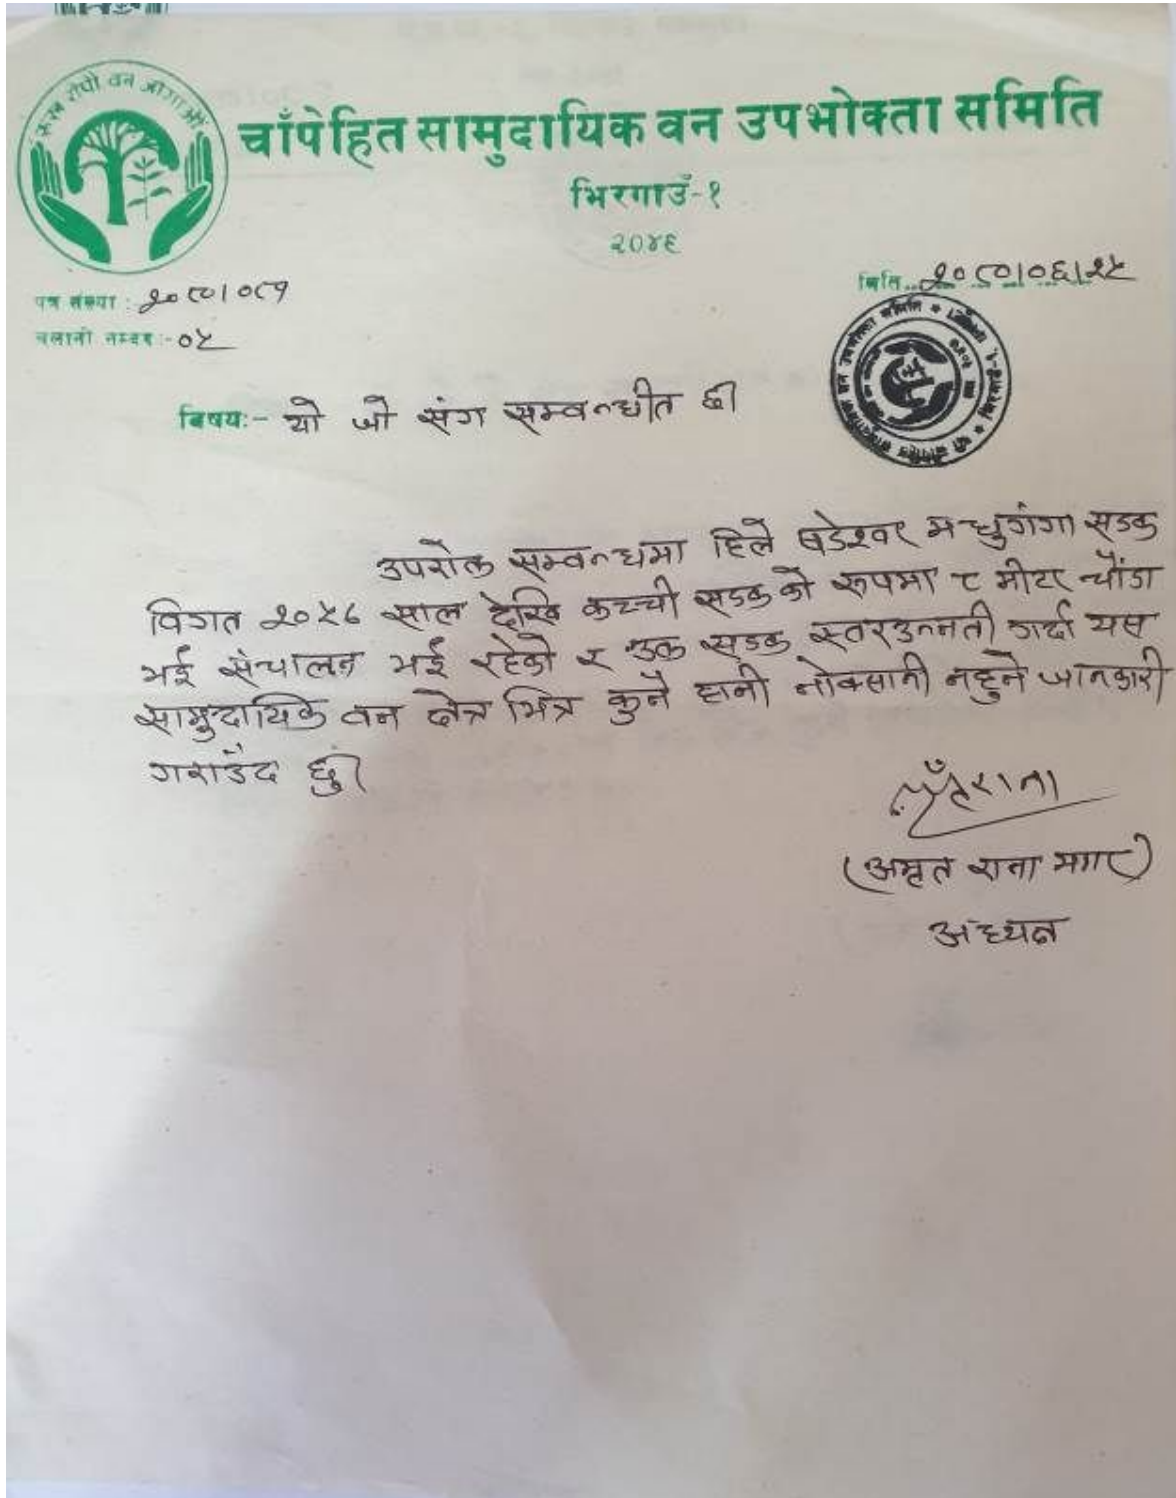 रुख रोपौं वन जोगाऔं
चाँपेहित सामुदायिक वन उपभोक्ता समिति
भिरगाउँ-१
२०४६
मिति..२०८०।०६।२५
पत्र संख्या : २०८०।०८१
चलानी नम्बर :- ०५
बिषय:- यो जो संग सम्वन्धीत छ।
उपरोक्त सम्वन्धमा हिले बडेश्वर मधुगंगा सडक
विगत २०५६ साल देखि कच्ची सडकको रूपमा ८ मीटर चौंडा
भई संचालन भई रहेको र उक्त सडक स्तरउन्नती गर्दा यस
सामुदायिक वन क्षेत्र भित्र कुनै हानी नोक्सानी नहुने जानकारी
गराउँद छु।
(अमृत राना मगर)
अध्यक्ष